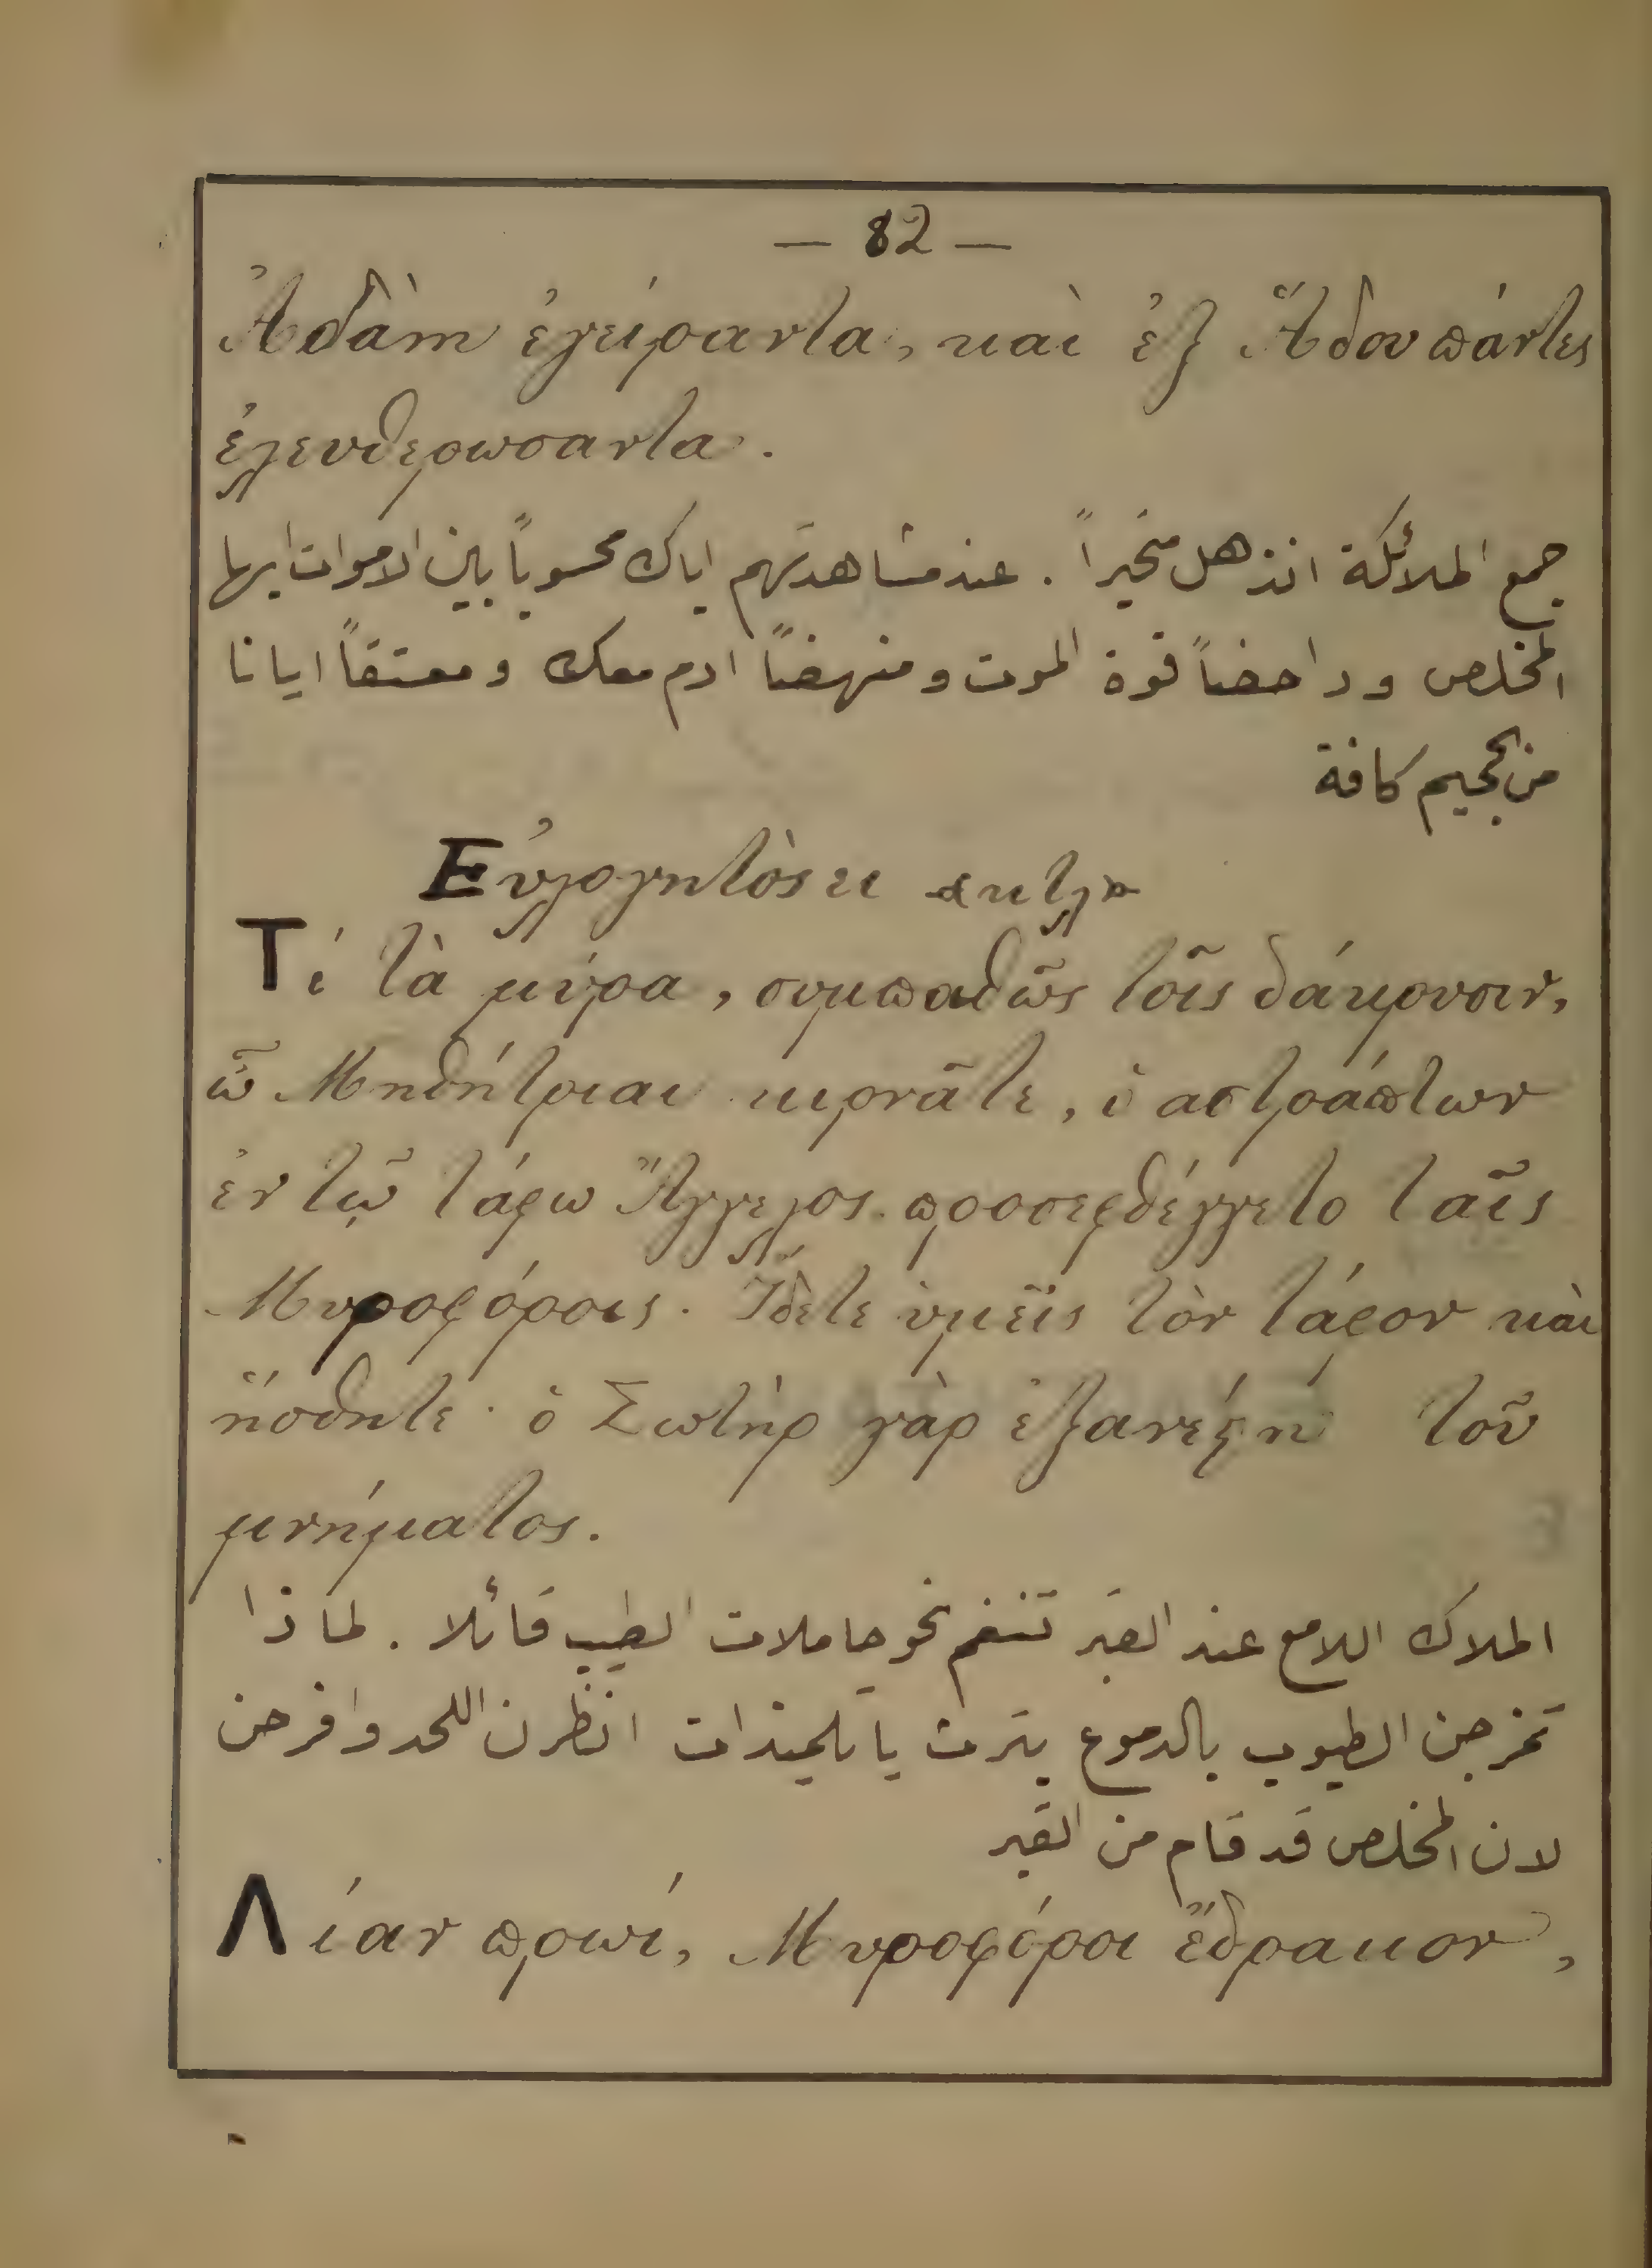 — 82 —
Ἀδὰμ ἐγείραντα, καὶ ἐξ Ἅδου πάντες
ἐλευθερωσαντα.
جمع الملائكة انذهل متحيراً . عند مشاهدتهم اياك محسوباً بين الاموات ايها
المخلص وداحضاً قوة الموت ومنهضاً ادم معك ومعتقاً ايانا
من الجحيم كافة
Εὐλογητὸς εἶ κτλ
Τί τὰ μύρα, συμπαθῶς τοῖς δάκρυσιν,
ὦ Μαθήτριαι κιρνᾶτε, ὁ αστράπτων
ἐν τῷ τάφω Ἄγγελος. προσεφθέγγετο ταῖς
Μυροφόροις. Ἴδετε ὑμεῖς τὸν τάφον καὶ
ἥσθητε · ὁ Σωτὴρ γὰρ ἐξανέστη τοῦ
μνήματος.
الملاك اللامع عند القبر تنغم نحو حاملات الطيب قائلا . لماذا
تمزجن الطيوب بالدموع بترث يا تلميذات انظرن اللحد وافرحن
لان المخلص قد قام من القبر
Λίαν πρωί, Μυροφόροι ἔδραμον,